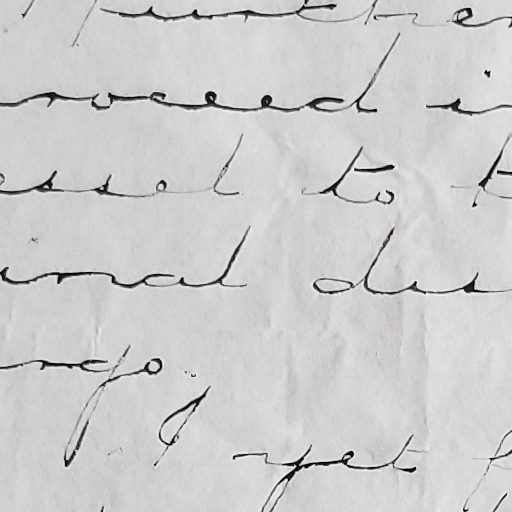 further
proceed in
essel to t
inal dis
argo.
I yet f